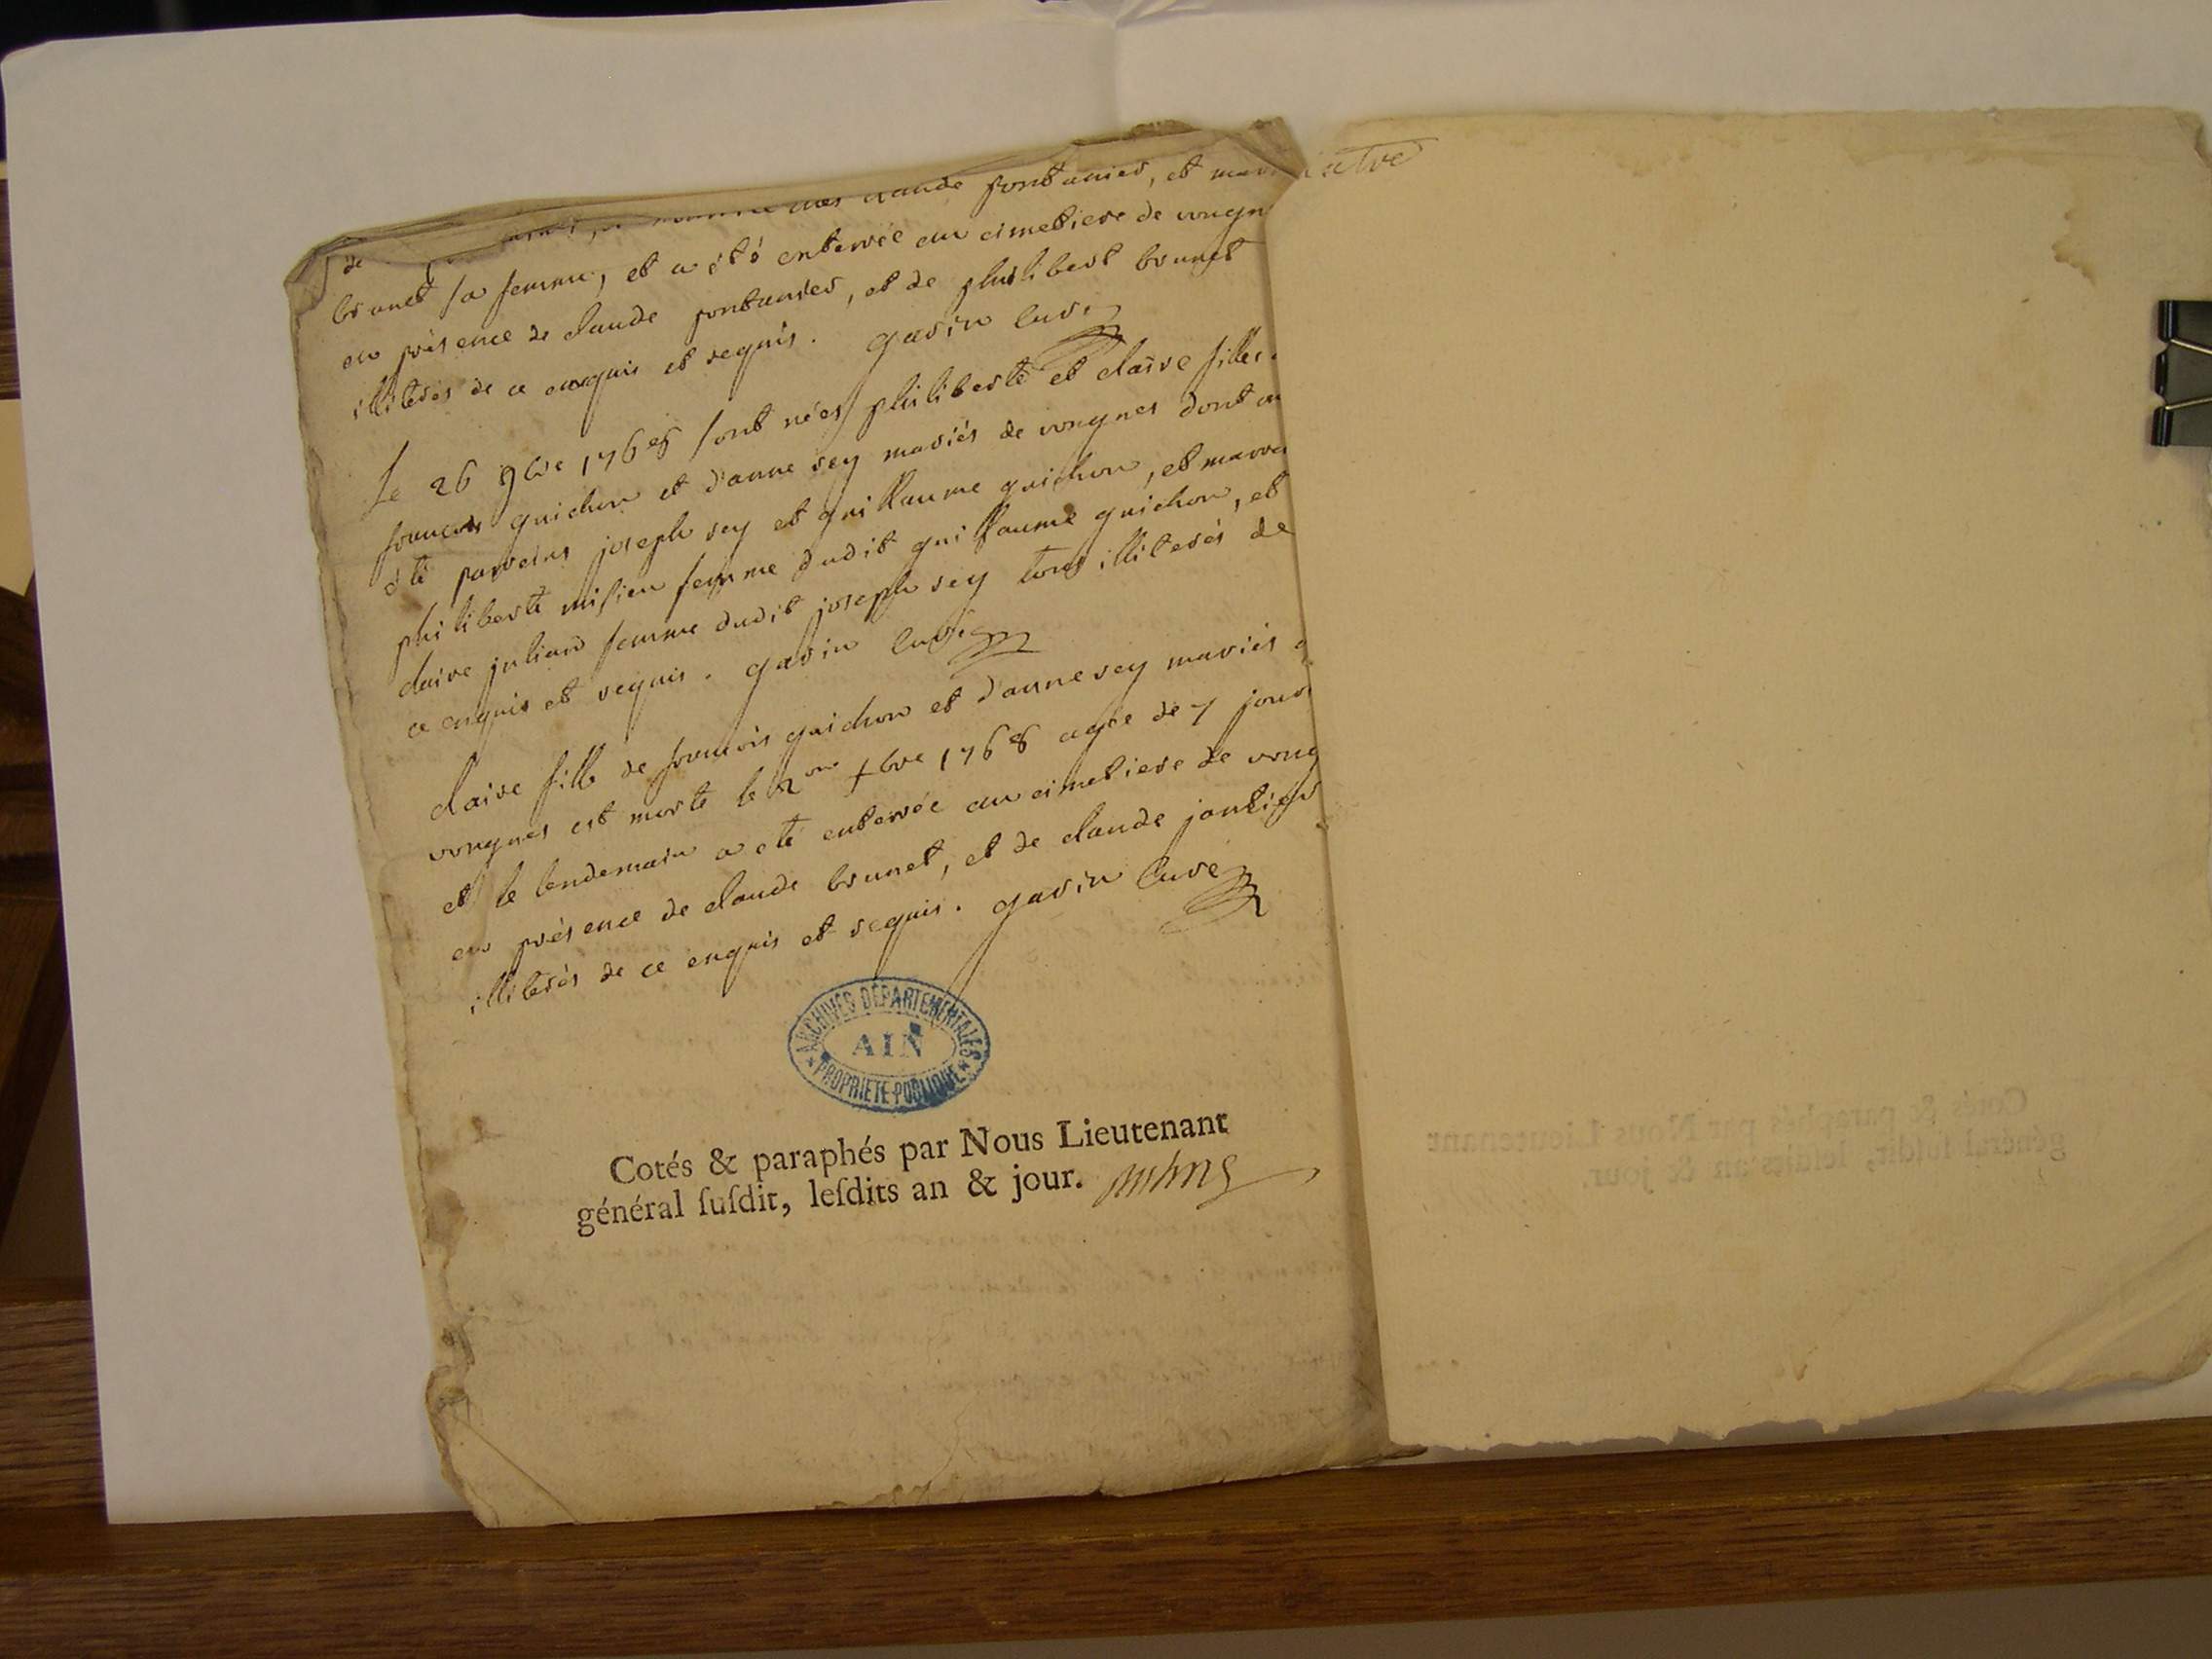 de claude pontanier, et
brunet sa femme, et a été enterrée au cimetiere de vongn
en présence de claude pontanier, et de philibert brunet
illiterés de ce enquis et requis. gavin curé
Le 26 9bre 1768 sont nées philiberte et claire filles
francois guichon et d'anne rey mariés de vongnes dont on
été parreins joseph rey et guillaume guichon, et marre
philiberte mifieu femme dudit guillaume guichon, et
claire julian femme dudit joseph rey tous illiterés de
ce enquis et requis. gavin curé
claire fille de francois guichon et d'anne rey mariés
vongnes est morte le 2me Xbre 1768 agée de 7 jours
et le lendemain a eté enterrée au cimetiere de vong
en présence de claude brunet, et de claude jantier
illiterés de ce enquis et requis. gavin curé
ARCHIVES DÉPARTEMENTALES
AIN
PROPRIÉTÉ PUBLIQUE
Cotés & paraphés par Nous Lieutenant
général ſuſdit, leſdits an & jour.